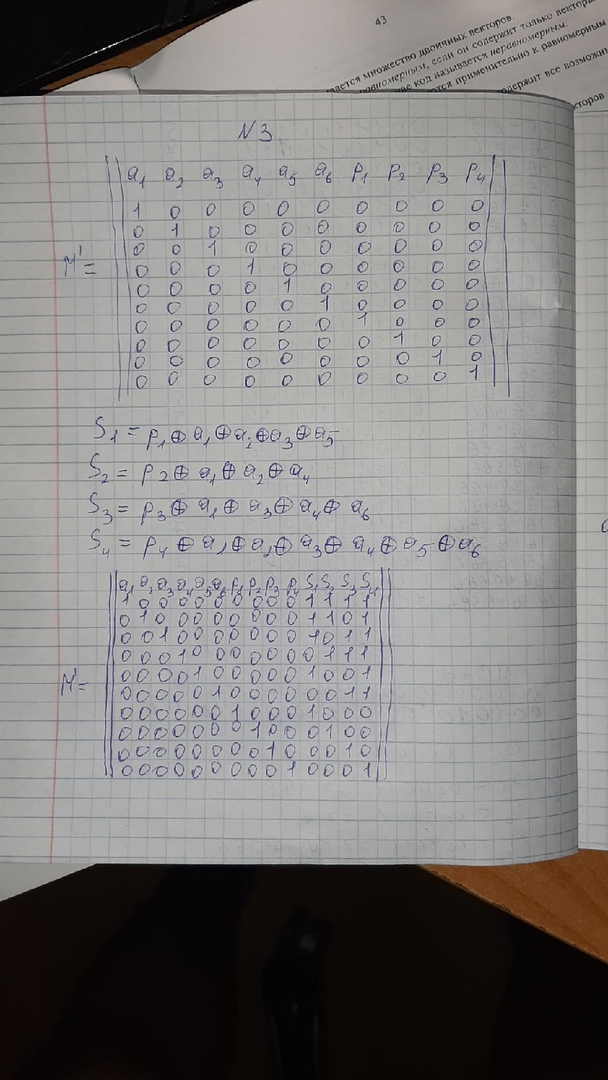 43
множество двоичных векторов.
равномерным, если он содержит только векторы
код называется неравномерным.
применительно к равномерным
содержит все возможн
векторов
N3
a1 a2 a3 a4 a5 a6 p1 p2 p3 p4
1 0 0 0 0 0 0 0 0 0
0 1 0 0 0 0 0 0 0 0
0 0 1 0 0 0 0 0 0 0
M' =
0 0 0 1 0 0 0 0 0 0
0 0 0 0 1 0 0 0 0 0
0 0 0 0 0 1 0 0 0 0
0 0 0 0 0 0 1 0 0 0
0 0 0 0 0 0 0 1 0 0
0 0 0 0 0 0 0 0 1 0
0 0 0 0 0 0 0 0 0 1
S1 = p1 ⊕ a1 ⊕ a2 ⊕ a3 ⊕ a5
S2 = p2 ⊕ a1 ⊕ a2 ⊕ a4
S3 = p3 ⊕ a1 ⊕ a3 ⊕ a4 ⊕ a6
S4 = p4 ⊕ a1 ⊕ a2 ⊕ a3 ⊕ a4 ⊕ a5 ⊕ a6
a1 a2 a3 a4 a5 a6 p1 p2 p3 p4 S1 S2 S3 S4
1 0 0 0 0 0 0 0 0 0 1 1 1 1
0 1 0 0 0 0 0 0 0 0 1 1 0 1
0 0 1 0 0 0 0 0 0 0 1 0 1 1
0 0 0 1 0 0 0 0 0 0 0 1 1 1
M' =
0 0 0 0 1 0 0 0 0 0 1 0 0 1
0 0 0 0 0 1 0 0 0 0 0 0 1 1
0 0 0 0 0 0 1 0 0 0 1 0 0 0
0 0 0 0 0 0 0 1 0 0 0 1 0 0
0 0 0 0 0 0 0 0 1 0 0 0 1 0
0 0 0 0 0 0 0 0 0 1 0 0 0 1